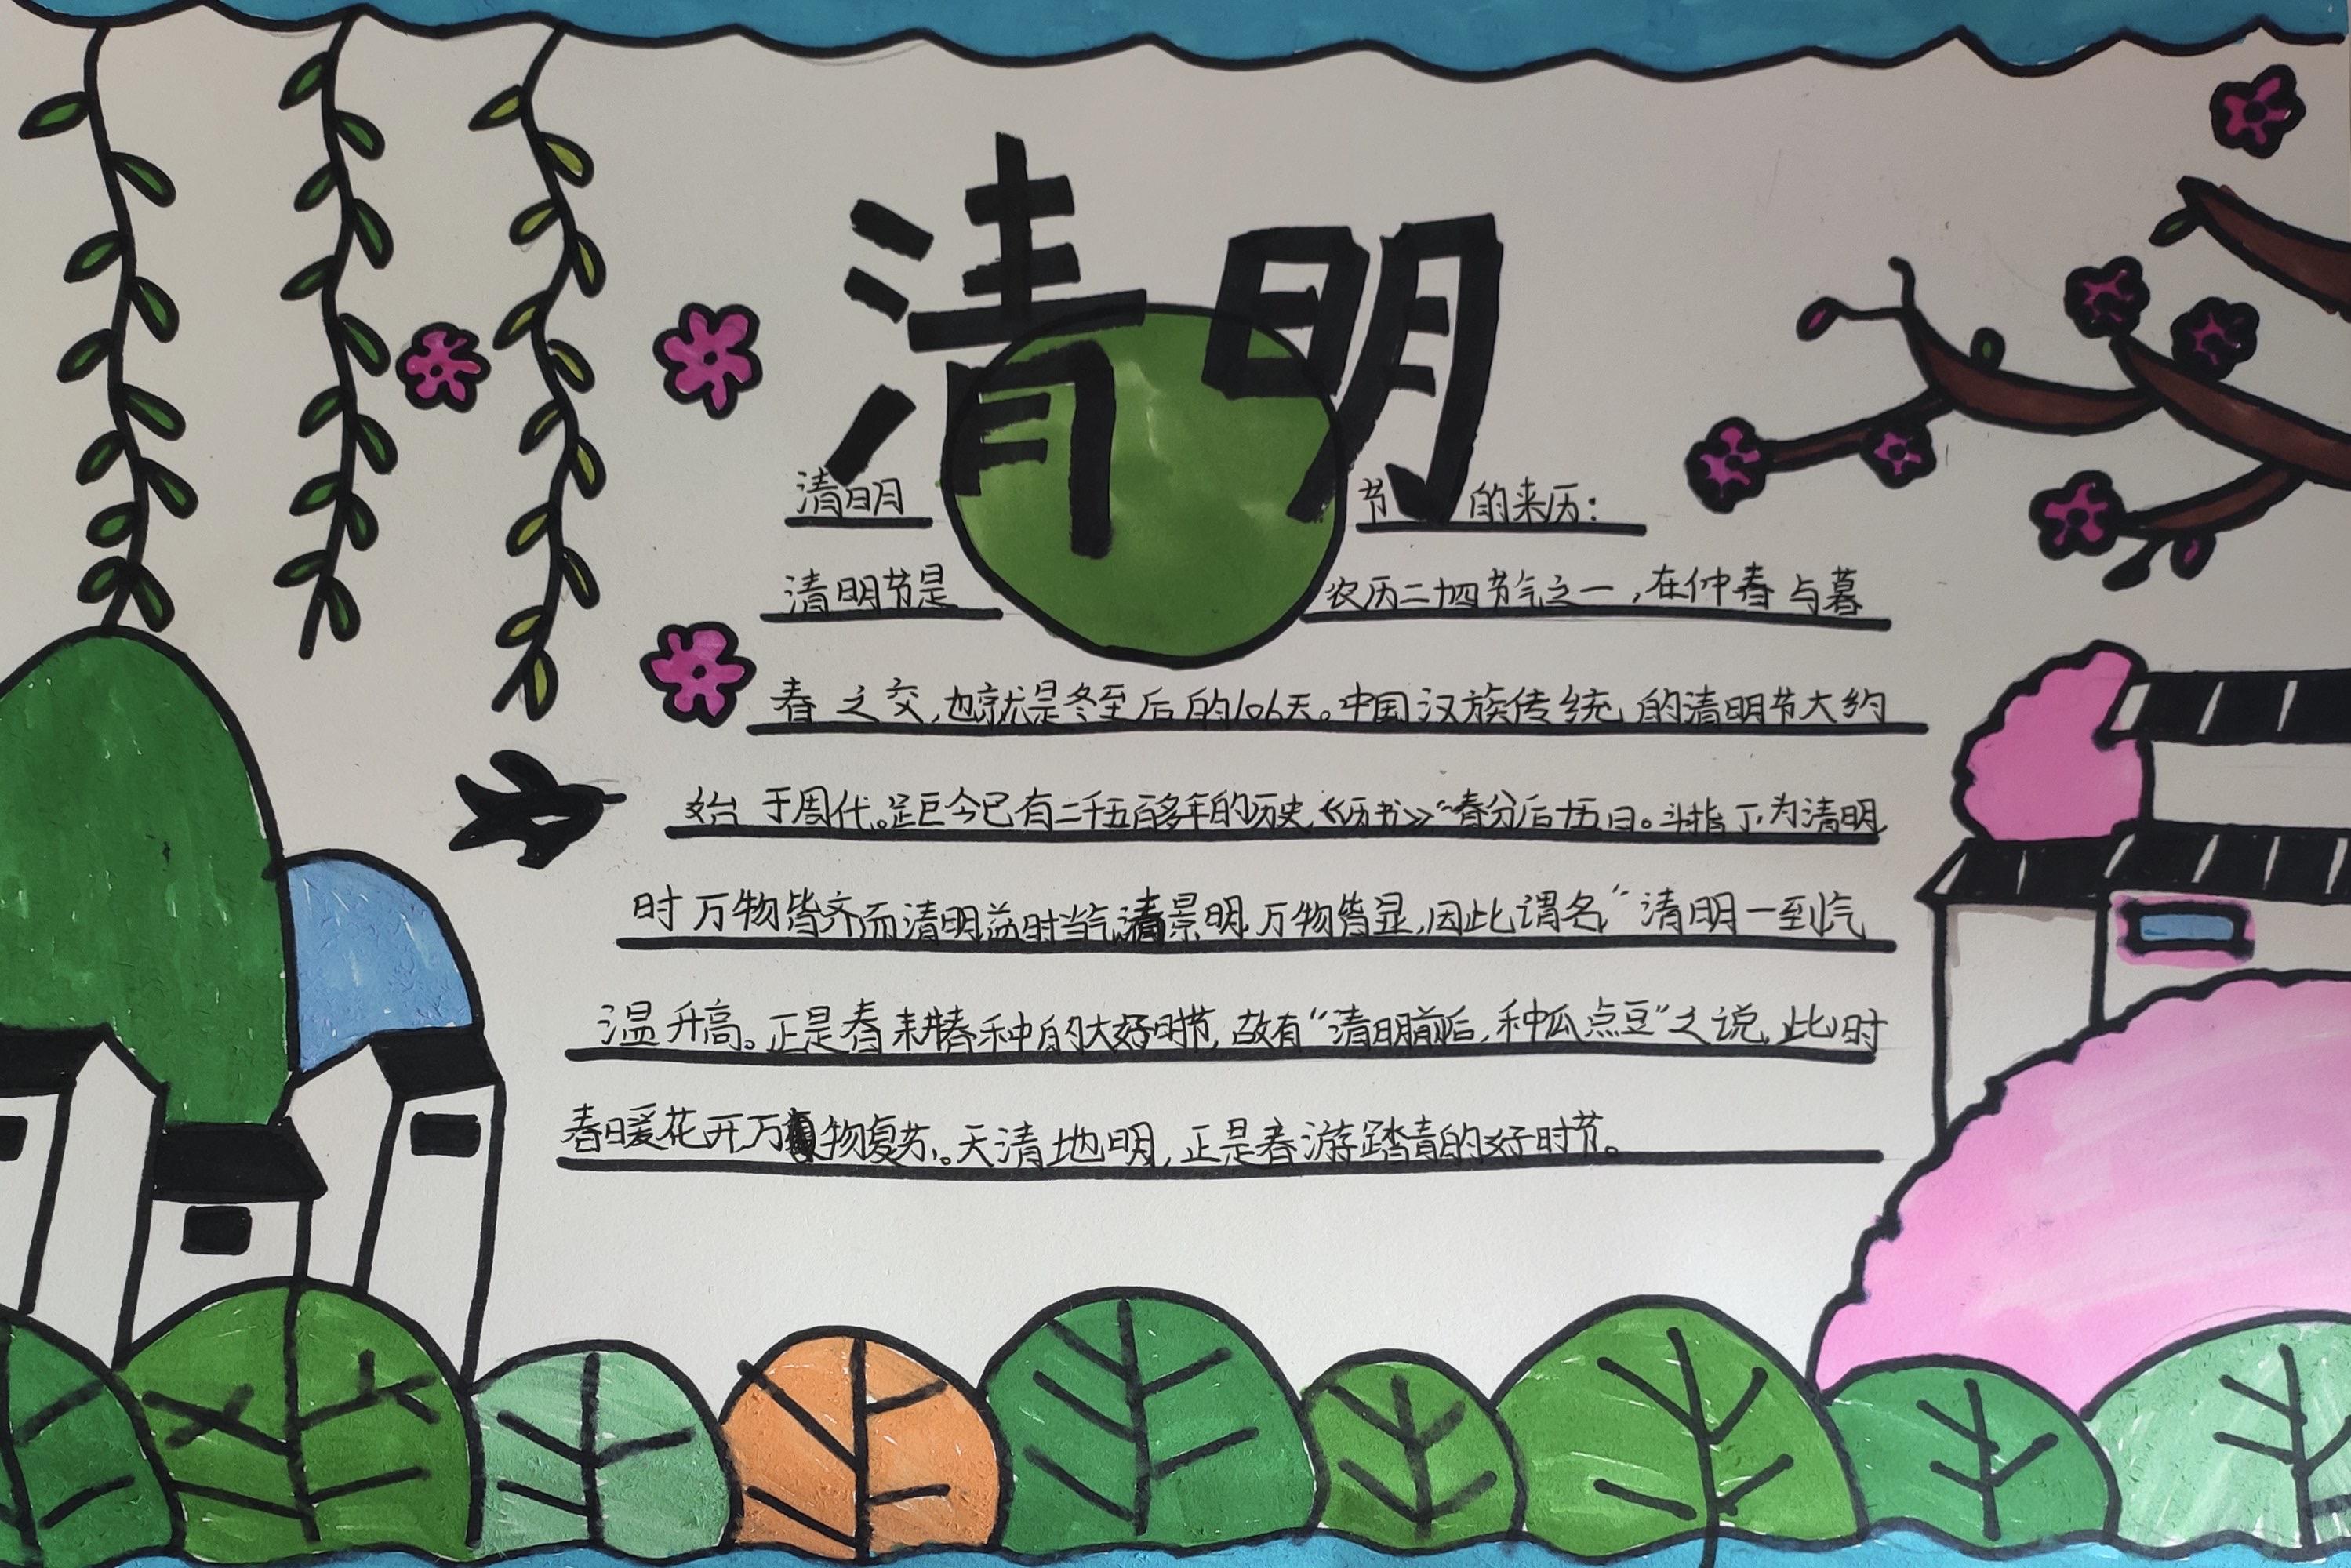 清明
清明节的来历：
清明节是农历二十四节气之一，在仲春与暮
春之交，也就是冬至后的106天。中国汉族传统的清明节大约
始于周代。距今已有二千五百多年的历史，《历书》“春分后十五日。斗指丁，为清明，
时万物皆齐而清明益时当气清景明，万物皆显，因此谓名“清明一到气
温升高。正是春耕春种的大好时节，故有“清明前后，种瓜点豆”之说，此时
春暖花开万物复苏。天清地明，正是春游踏青的好时节。